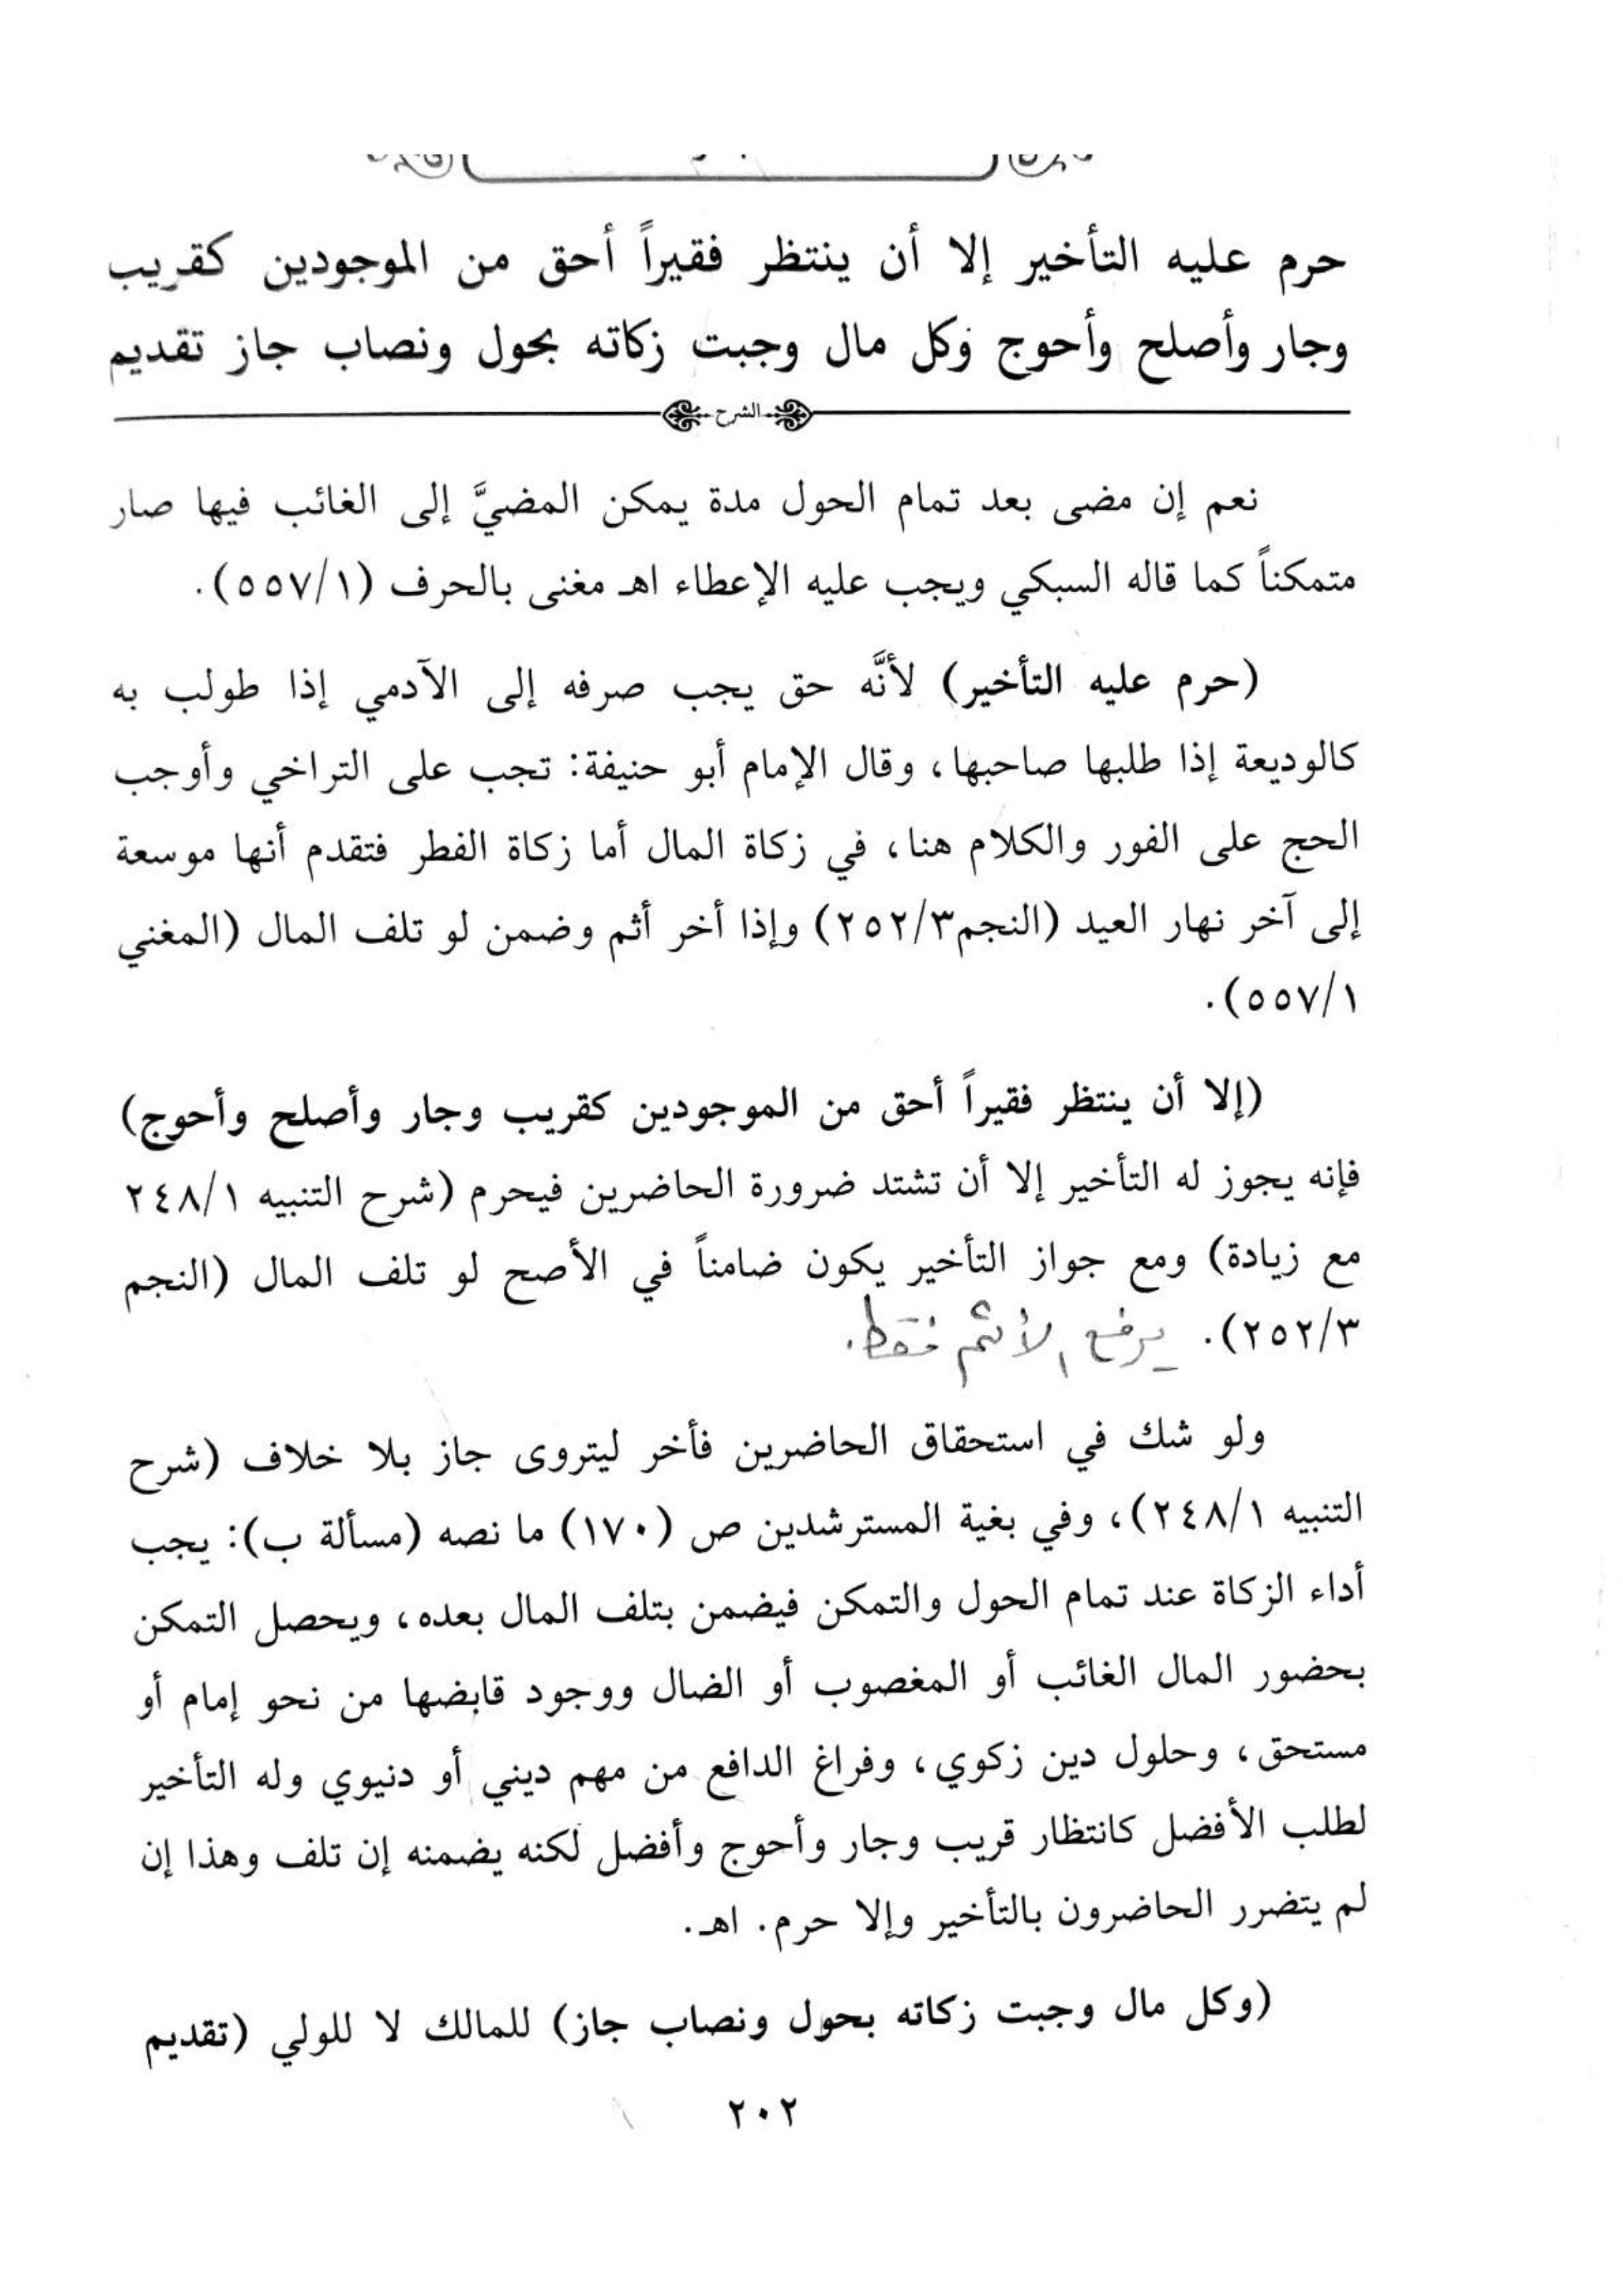 حرم عليه التأخير إلا أن ينتظر فقيراً أحق من الموجودين كقريب
وجار وأصلح وأحوج وكل مال وجبت زكاته بحول ونصاب جاز تقديم
الشرح
نعم إن مضى بعد تمام الحول مدة يمكن المضيَّ إلى الغائب فيها صار
متمكناً كما قاله السبكي ويجب عليه الإعطاء اهـ مغنى بالحرف (٥٥٧/١).
(حرم عليه التأخير) لأنَّه حق يجب صرفه إلى الآدمي إذا طولب به
كالوديعة إذا طلبها صاحبها، وقال الإمام أبو حنيفة: تجب على التراخي وأوجب
الحج على الفور والكلام هنا، في زكاة المال أما زكاة الفطر فتقدم أنها موسعة
إلى آخر نهار العيد (النجم٢٥٢/٣) وإذا أخر أثم وضمن لو تلف المال (المغني
٥٥٧/١).
(إلا أن ينتظر فقيراً أحق من الموجودين كقريب وجار وأصلح وأحوج)
فإنه يجوز له التأخير إلا أن تشتد ضرورة الحاضرين فيحرم (شرح التنبيه ٢٤٨/١
مع زيادة) ومع جواز التأخير يكون ضامناً في الأصح لو تلف المال (النجم
٢٥٢/٣). يرفع الأثم فقط.
ولو شك في استحقاق الحاضرين فأخر ليتروى جاز بلا خلاف (شرح
التنبيه ٢٤٨/١)، وفي بغية المسترشدين ص (١٧٠) ما نصه (مسألة ب): يجب
أداء الزكاة عند تمام الحول والتمكن فيضمن بتلف المال بعده، ويحصل التمكن
بحضور المال الغائب أو المغصوب أو الضال ووجود قابضها من نحو إمام أو
مستحق، وحلول دين زكوي، وفراغ الدافع من مهم ديني أو دنيوي وله التأخير
لطلب الأفضل كانتظار قريب وجار وأحوج وأفضل لكنه يضمنه إن تلف وهذا إن
لم يتضرر الحاضرون بالتأخير وإلا حرم. اهـ.
(وكل مال وجبت زكاته بحول ونصاب جاز) للمالك لا للولي (تقديم
٢٠٢